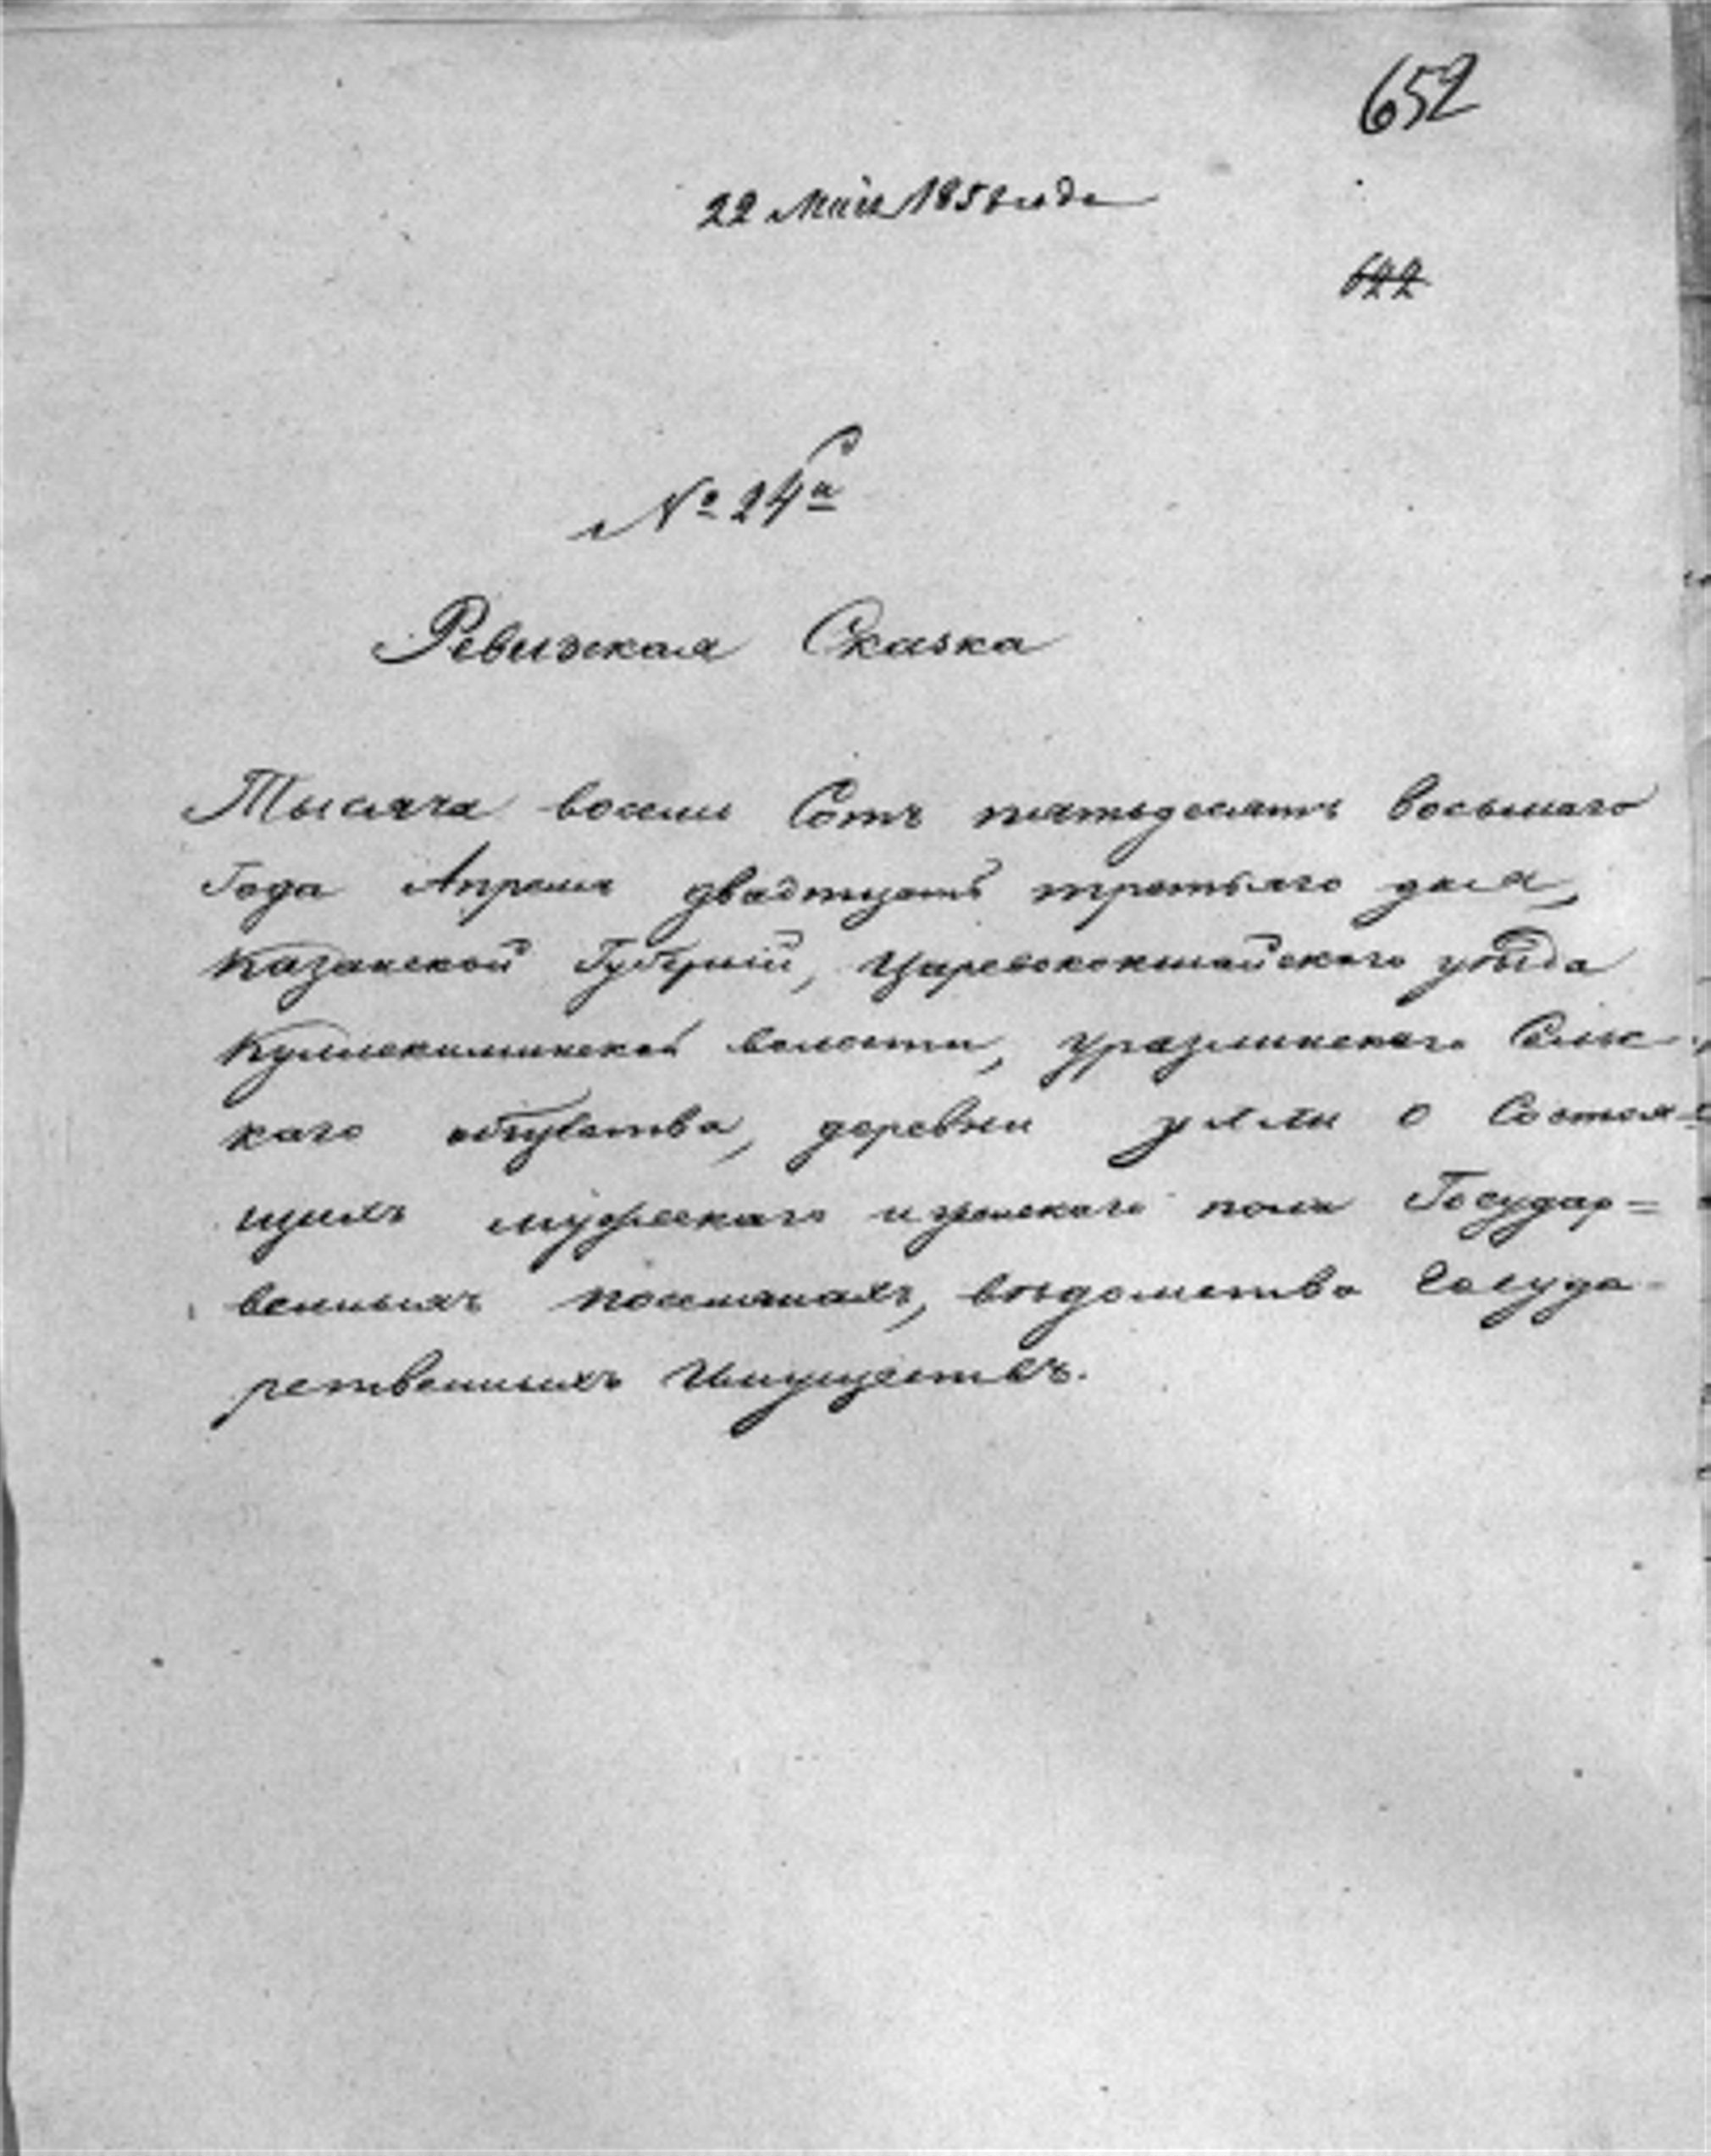 652
22 Мая 1858 года
622
№ 24й
Ревизская Сказка
Тысяча восемь Сотъ пятьдесятъ восьмаго
Года Апреля двадтцать третьяго дня,
Казанской Губерніи, Царевококшайскаго уѣзда
Кулле-киминской волости, Уразлинскаго Сельс-
каго общества, деревни Уллы о Состоя-
щихъ мужескаго и женскаго пола Государ=
венныхъ поселянахъ, вѣдомства Госуда-
рственныхъ Имуществъ.